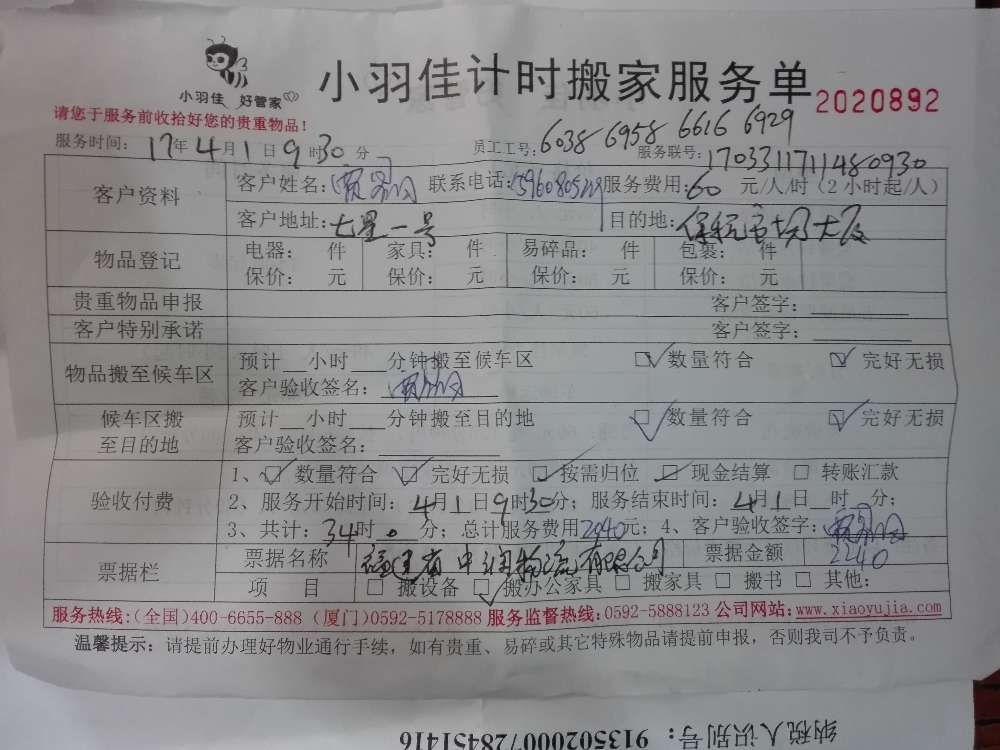 小羽佳计时搬家服务单 2020892
小羽佳 好管家
请您于服务前收拾好您的贵重物品！
服务时间： 17年4月1日9时30分 员工工号：6038 6958 6616 6929
服务联号：1703311711480930
客户资料 客户姓名： 联系电话： 服务费用：60元/人/时（2小时起/人）
客户地址：七星一号 目的地：保税市场大厦
物品登记 电器： 件 家具： 件 易碎品： 件 包裹： 件
保价： 元 保价： 元 保价： 元 保价： 元
贵重物品申报 客户签字：
客户特别承诺 客户签字：
物品搬至候车区 预计__小时___分钟搬至候车区 ☑数量符合 ☑完好无损
客户验收签名：
候车区搬至目的地 预计__小时___分钟搬至目的地 ☑数量符合 ☑完好无损
客户验收签名：
验收付费 1、☑数量符合 ☑完好无损 ☑按需归位 ☑现金结算 □转账汇款
2、服务开始时间：4月1日9时30分；服务结束时间：4月1日__时__分；
3、共计：34时0分；总计服务费用2040元；4、客户验收签字：
票据栏 票据名称 福建省中润物流有限公司 票据金额 2240
项 目 □搬设备 ☑搬办公家具 □搬家具 □搬书 □其他：
服务热线：(全国)400-6655-888 (厦门)0592-5178888 服务监督热线：0592-5888123 公司网站：www.xiaoyujia.com
温馨提示：请提前办理好物业通行手续，如有贵重、易碎或其它特殊物品请提前申报，否则我司不予负责。
纳税人识别号：913502000728451416